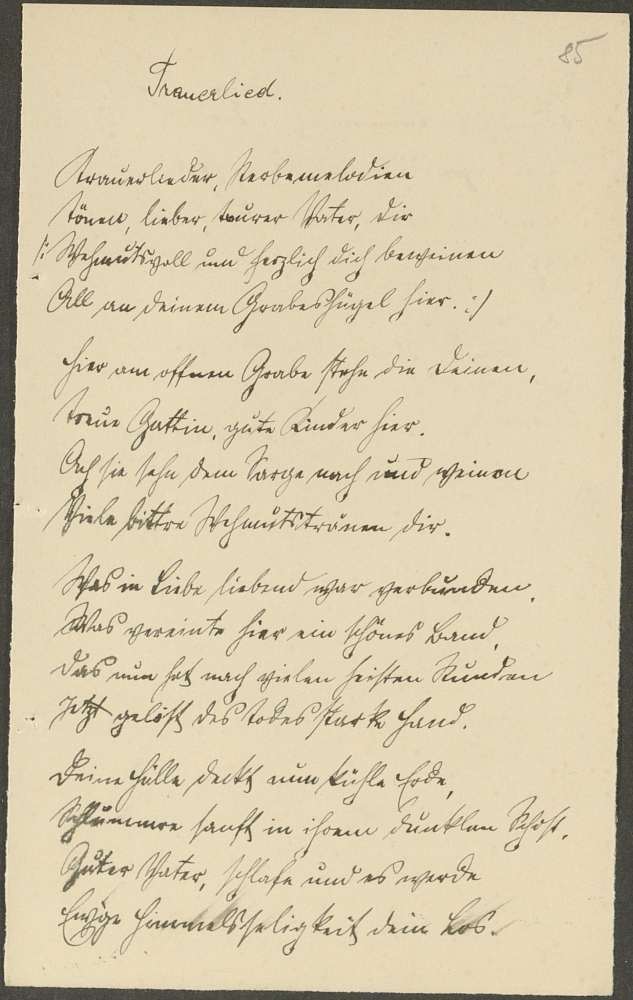 85
Trauerlied.
Trauerlieder, Sterbemelodien
Tönen, lieber, teurer Vater, dir
/: Wehmutsvoll und herzlich dich beweinen
All an deinem Grabeshügel hier. :/
Hier am offnen Grabe stehn die Deinen,
Treue Gattin, gute Kinder hier.
Ach sie sehn dem Sarge nach und weinen
Viele bittre Wehmutstränen dir.
Was in Liebe liebend war verbunden,
Was vereinte hier ein schönes Band,
Das nun hat nach vielen heißen Stunden
Jetzt gelöst des Todes starke Hand.
Deine Hülle deckt nun kühle Erde,
Schlummre sanft in ihrem dunklen Schoß,
Guter Vater, schlafe und es werde
Ewge Himmelsseligkeit dein Los.